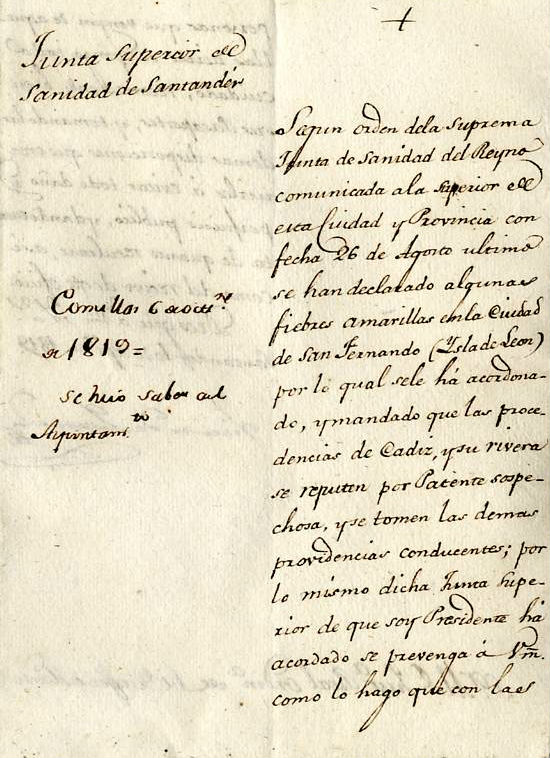 Junta Superior de
Sanidad de Santandér
Comillas 6 de octre
de 1819=
se hizo saber al
Ayuntamto
Segun orden dela Suprema
Junta de Sanidad del Reyno
comunicada a la Superior de
esta Ciudad y Provincia con
fecha 26 de Agosto ultimo
se han declarado algunas
fiebres amarillas en la Ciudad
de San Fernando (Ysla de Leon)
por lo qual sele há acordona-
do, y mandado que las proce-
dencias de Cadiz, y su rivera
se reputen por Patente sospe-
chosa, y se tomen las demas
providencias conducentes; por
lo mismo dicha Junta Supe-
rior de que soy Presidente há
acordado se prevenga á Vm.
como lo hago que con la es